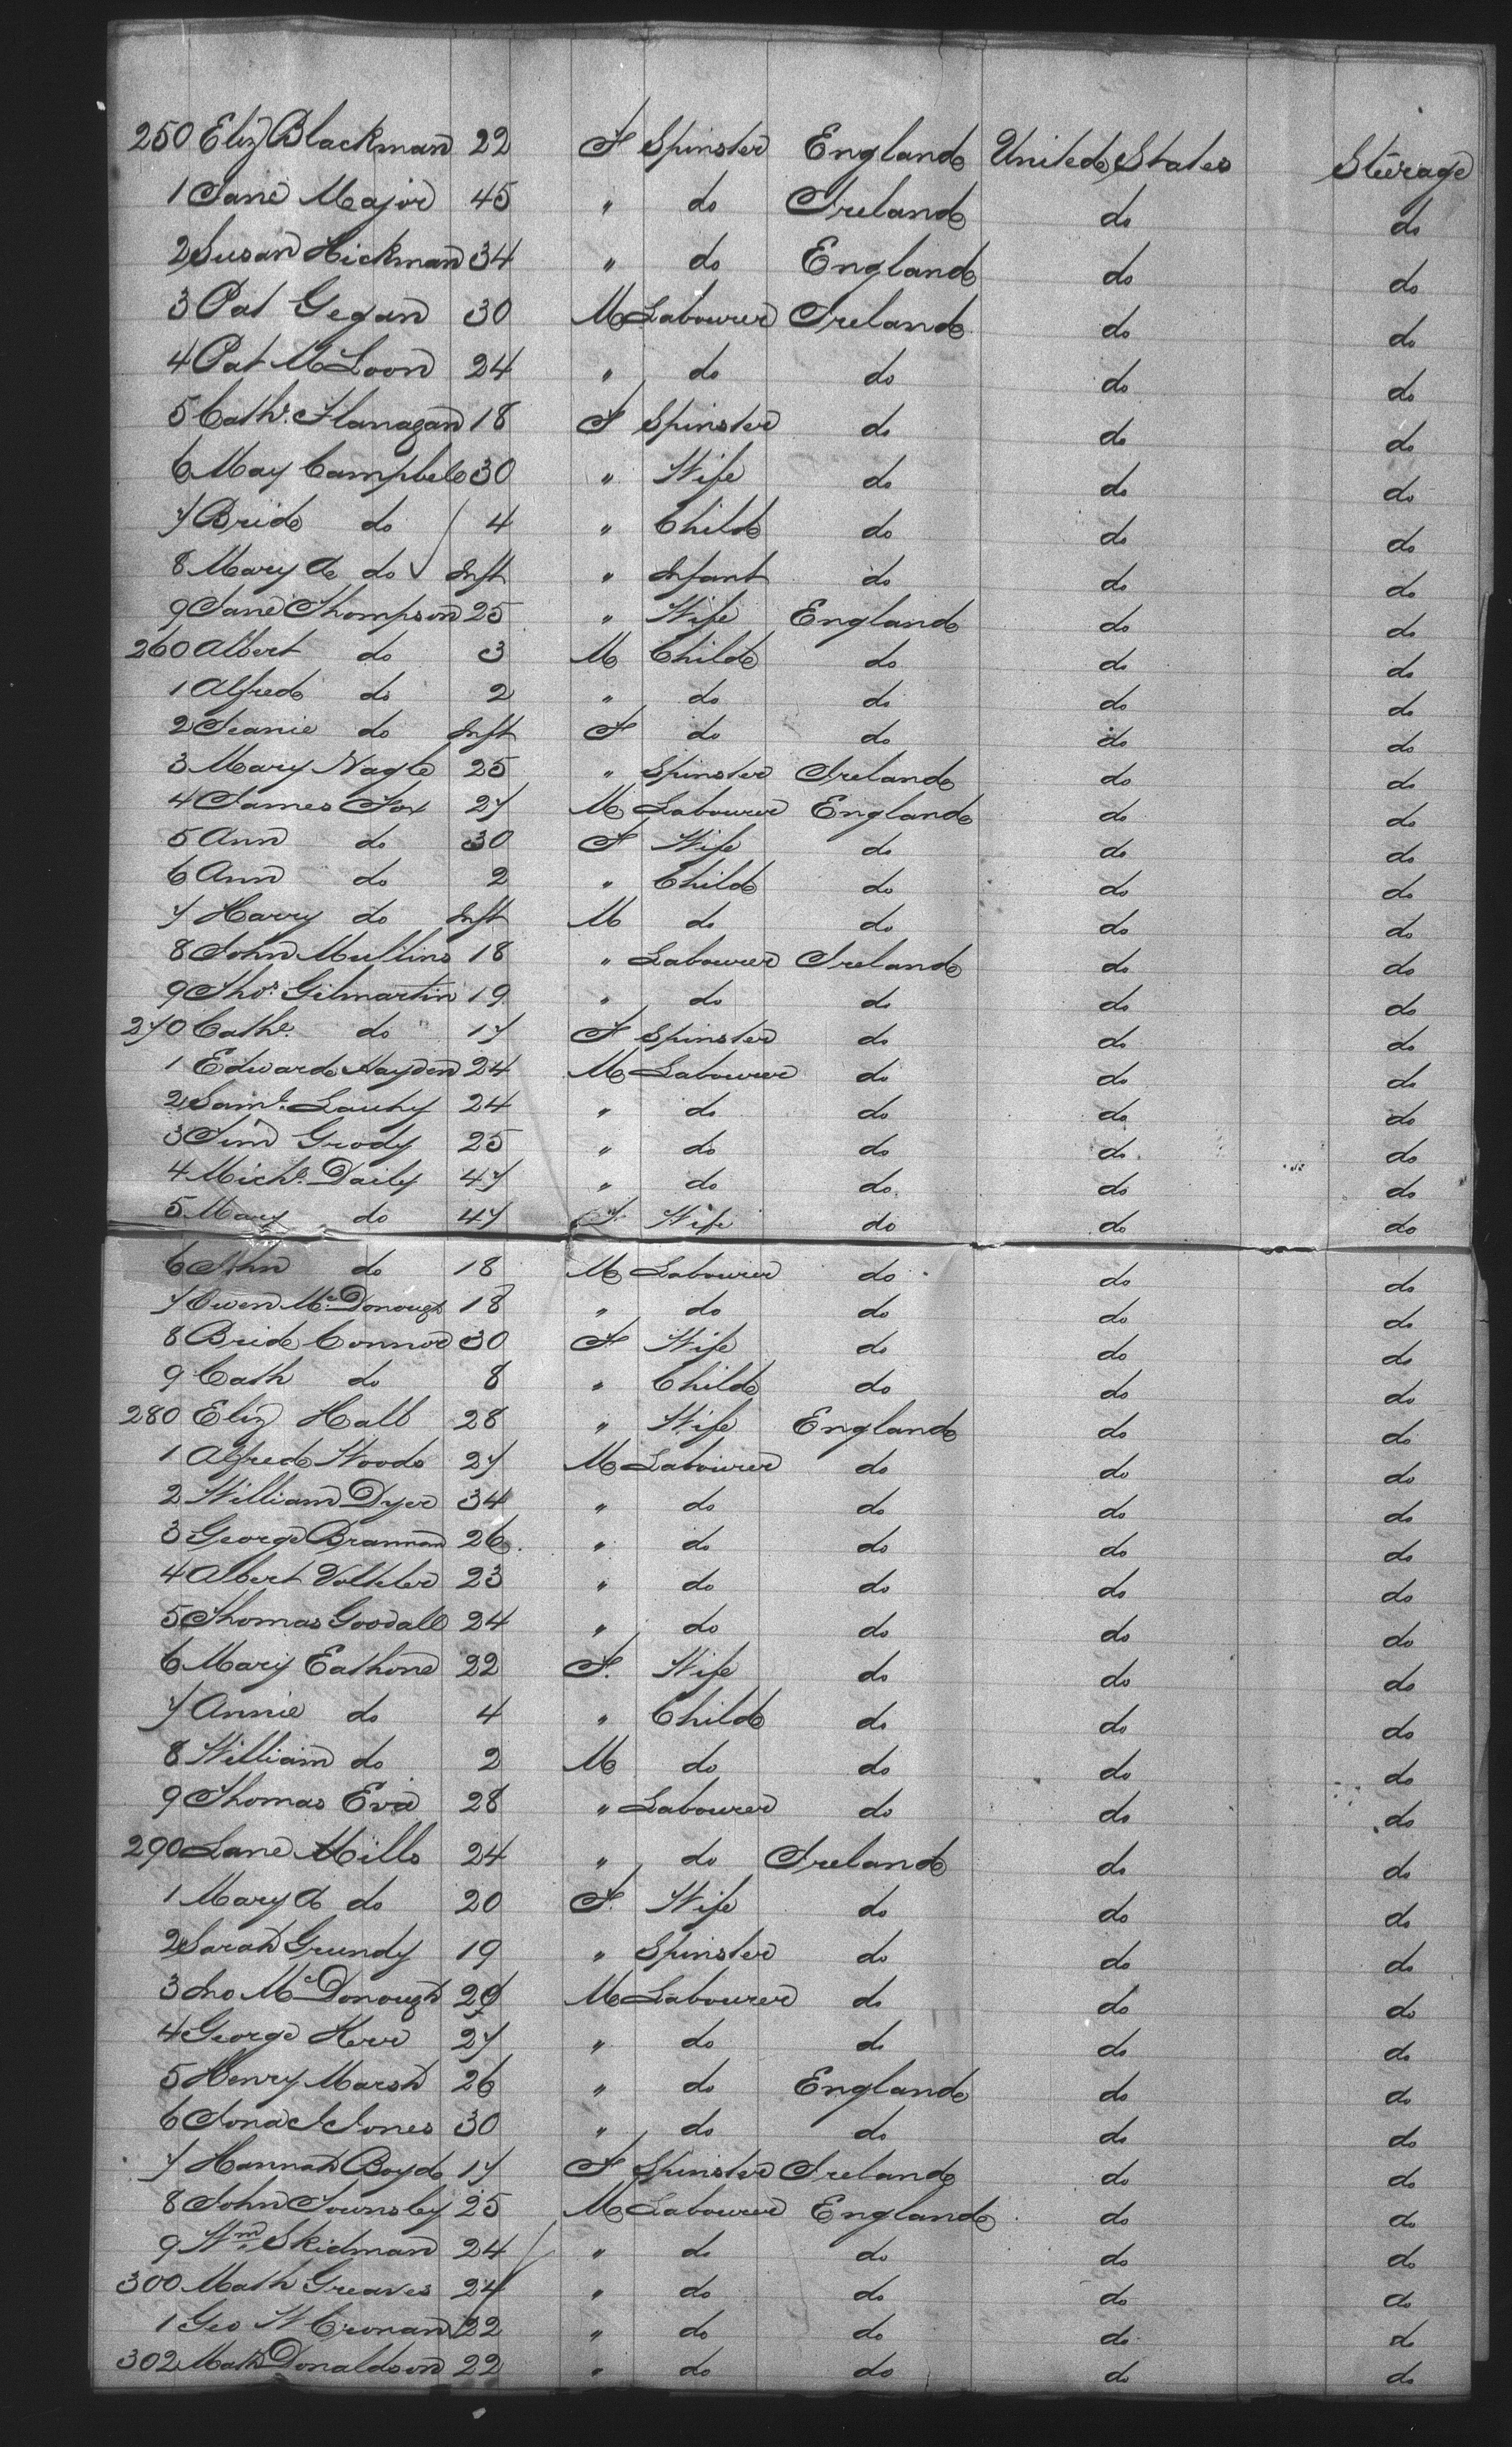 250 Eliz Blackman 22 F Spinster England United States Steerage
1 Jane Major 45 " do Ireland do do
2 Susan Hickman 34 " do England do do
3 Pat Gegan 30 M Labourer Ireland do do
4 Pat McLoon 24 " do do do do
5 Cath. Flanagan 18 F Spinster do do do
6 May Campbell 30 " Wife do do do
7 Brid do 4 " Child do do do
8 Mary A do Inft " Infant do do do
9 Jane Thompson 25 " Wife England do do
260 Albert do 3 M Child do do do
1 Alfred do 2 " do do do do
2 Jeanie do Inft F do do do do
3 Mary Nagle 25 " Spinster Ireland do do
4 James Fox 27 M Labourer England do do
5 Ann do 30 F Wife do do do
6 Ann do 2 " Child do do do
7 Harry do Inft M do do do do
8 John Mullins 18 " Labourer Ireland do do
9 Thos. Gilmartin 19 " do do do do
270 Cathe. do 17 F Spinster do do do
1 Edward Hayden 24 M Labourer do do do
2 Saml. 24 " do do do do
3 Tim Grody 25 " do do do do
4 Michl. Daily 47 " do do do do
5 Mary do 47 F. Wife do do do
6 John do 18 M Labourer do do do
7 Owen McDonough 18 " do do do do
8 Brid Connor 30 F Wife do do do
9 Cath do 8 " Child do do do
280 Eliz Hall 28 " Wife England do do
1 Alfred Woods 27 M Labourer do do do
2 William Dyer 34 " do do do do
3 George Brannan 26 " do do do do
4 Albert 23 " do do do do
5 Thomas Goodall 24 " do do do do
6 Mary Eathone 22 F. Wife do do do
7 Annie do 4 " Child do do do
8 William do 2 M do do do do
9 Thomas Eva 28 " Labourer do do do
290 Lane Mills 24 " do Ireland do do
1 Mary A do 20 F. Wife do do do
2 Sarah Grundy 19 " Spinster do do do
3 Jno McDonough M Labourer do do do
4 George Kerr 27 " do do do do
5 Henry Marsh 26 " do England do do
6 Jones 30 " do do do do
7 Hannah Boyd 17 F Spinster Ireland do do
8 John Townsley 25 M Labourer England do do
9 Wm. Skidman 24 " do do do do
300 Math Greaves 24 " do do do do
1 Geo W Cronan 22 " do do do do
302 Math Donaldson 22 " do do do do